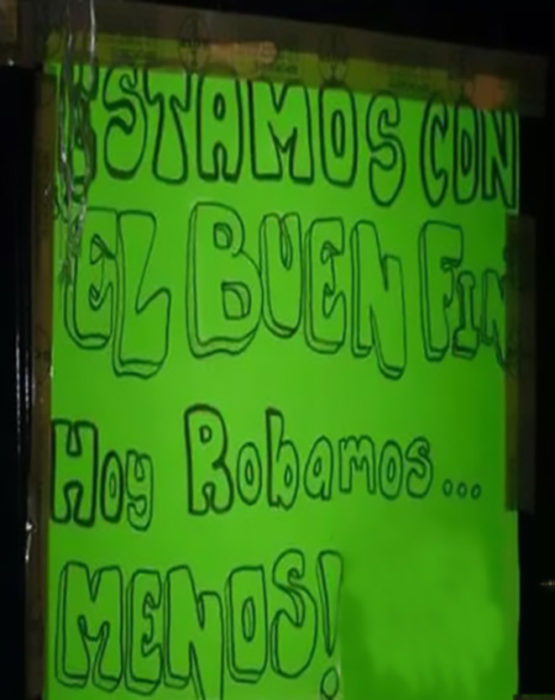 ESTAMOS CON
EL BUEN FIN
Hoy Robamos...
MENOS!